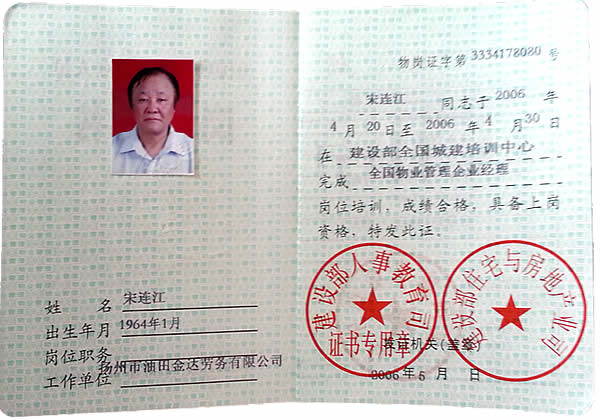 姓 名 宋连江
出生年月 1964年1月
岗位职务
工作单位 扬州市油田金达劳务有限公司
物岗证字第 3334178080 号
宋连江 同志于 2006 年
4 月 20 日至 2006 年 4 月 30
在 建设部全国城建培训中心
完成 全国物业管理企业经理
岗位培训，成绩合格，具备上岗
资格，特发此证。
建设部人事教育司
证书专用章
建设部住宅与房地产业司
发证机关(盖章)
2006 年 5 月 日